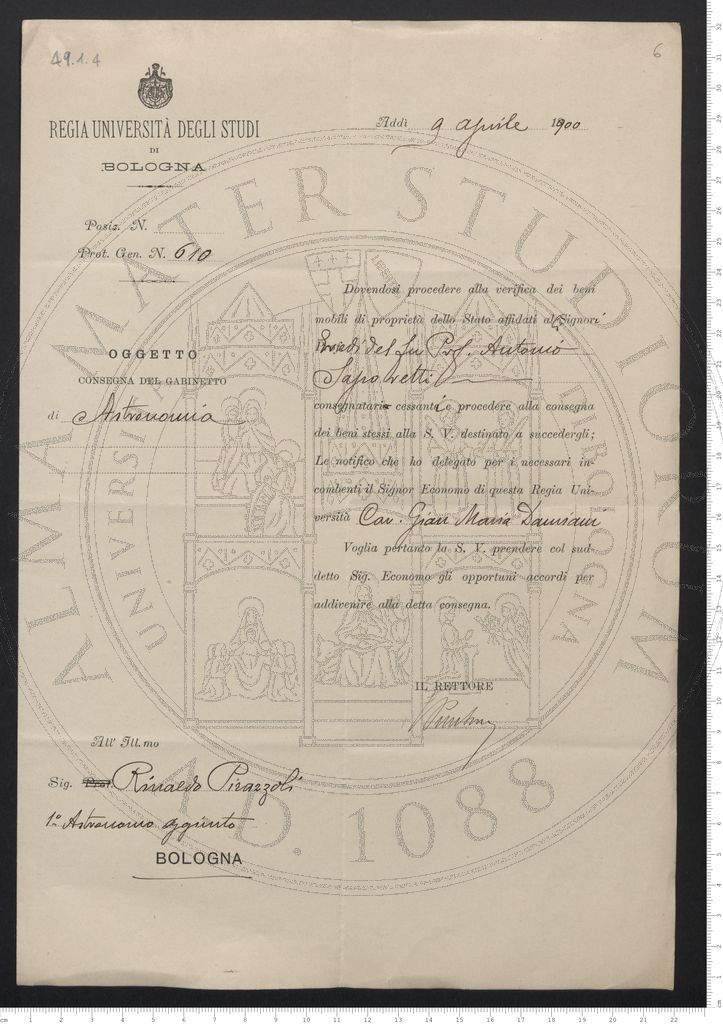 49.1.4
6
REGIA UNIVERSITÀ DEGLI STUDI
DI
BOLOGNA
Addì 9 aprile 1900
Posiz. N.
Prot. Gen. N. 610
OGGETTO
CONSEGNA DEL GABINETTO
di Astronomia
Dovendosi procedere alla verifica dei beni
mobili di proprietà dello Stato affidati ai Signori
Eredi del fu Prof. Antonio
Saporetti
consegnatari cessanti e procedere alla consegna
dei beni stessi alla S. V. destinato a succedergli;
Le notifico che ho delegato per i necessari in-
combenti il Signor Economo di questa Regia Uni-
versità Cav. Gian Maria Damiani
Voglia pertanto la S. V. prendere col sud-
detto Sig. Economo gli opportuni accordi per
addivenire alla detta consegna.
IL RETTORE
All' Ill.mo
Sig. Prof. Rinaldo Pirazzoli
1º Astronomo aggiunto
BOLOGNA
ALMA MATER STUDIORUM
UNIVERSITÀ DI BOLOGNA
A.D. 1088